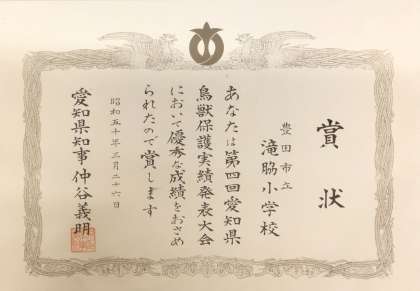 賞状
豊田市立
滝脇小学校
あなたは第四回愛知県
鳥獣保護実績発表大会
において優秀な成績をおさめ
られたので賞します
昭和五十年三月二十六日
愛知県知事 仲谷義明